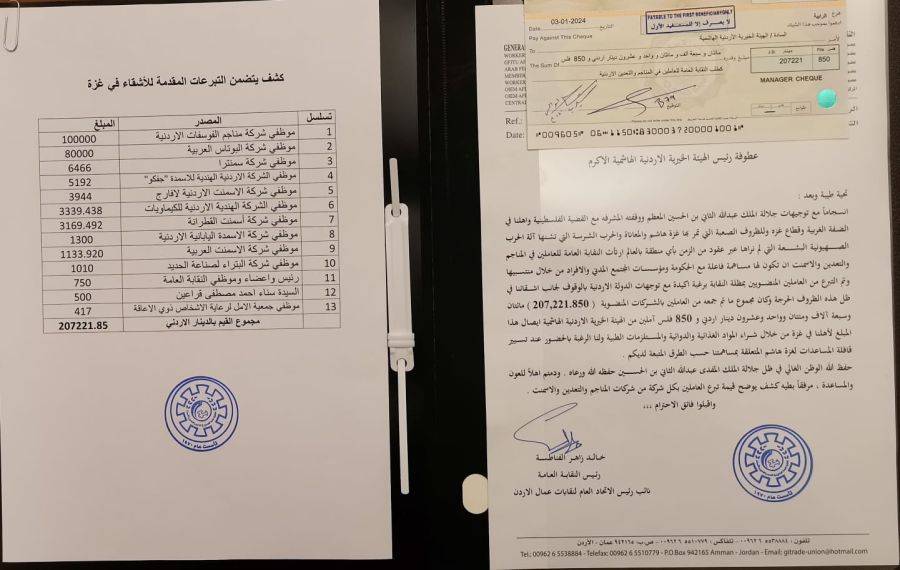 كشف يتضمن التبرعات المقدمة للأشقاء في غزة
تسلسل المصدر المبلغ
1 موظفي شركة مناجم الفوسفات الاردنية 100000
2 موظفي شركة البوتاس العربية 80000
3 موظفي شركة سمنترا 6466
4 موظفي الشركة الاردنية الهندية للاسمدة "جفكو" 5192
5 موظفي شركة الاسمنت الاردنية لافارج 3944
6 موظفي الشركة الهندية الاردنية للكيماويات 3339.438
7 موظفي شركة أسمنت القطرانة 3169.492
8 موظفي شركة الاسمدة اليابانية الاردنية 1300
9 موظفي شركة الاسمنت العربية 1133.920
10 موظفي شركة البتراء لصناعة الحديد 1010
11 رئيس واعضاء وموظفي النقابة العامة 750
12 السيدة سناء احمد مصطفى قراعين 500
13 موظفي جمعية الامل لرعاية الاشخاص ذوي الاعاقة 417
مجموع القيم بالدينار الاردني 207221.85
تأسست عام ١٩٧٠
03-01-2024
Date التاريخ
PAYABLE TO THE FIRST BENEFICIARY ONLY
لا يصرف إلا للمستفيد الأول
فرع
Pay Against This Cheque
ادفعوا بموجب هذا الشيك
To السادة / الهيئة الخيرية الأردنية الهاشمية لأمر
The Sum Of مائتان و سبعة ألف و مائتان و واحد و عشرون دينار اردني و 850 فلس
دينار J.D. فلس Fils
207221 850
كطلب النقابة العامة للعاملين في المناجم والتعدين الاردنية
MANAGER CHEQUE
التوقيع
B79
GENERAL
WORKER
GFITU
ARAB FE
MEMBER
WORKER
CENTRAL
Ref.:
Date:
عطوفة رئيس الهيئة الخيرية الاردنية الهاشمية الاكرم
تحية طيبة وبعد :
انسجاماً مع توجيهات جلالة الملك عبدالله الثاني بن الحسين المعظم ووقفته المشرفه مع القضية الفلسطينية واهلنا في
الضفة الغربية وقطاع غزة وللظروف الصعبة التي تمر بها غزة هاشم والمعاناة والحرب الشرسة التي تشنها آلة الحرب
الصهيونية البشعة التي لم نراها عبر عقود من الزمن بأي منطقة بالعالم ارتأت النقابة العامة للعاملين في المناجم
والتعدين والاسمنت ان تكون لها مساهمة فاعلة مع الحكومة ومؤسسات المجتمع المدني والافراد من خلال منتسبيها
وتم التبرع من العاملين المنضويين بمظلة النقابة برغبة اكيدة مع توجهات الدولة الاردنية بالوقوف لجانب اشقائنا في
ظل هذه الظروف الحرجة وكان مجموع ما تم جمعه من العاملين بالشركات المنضوية ( 207,221.850 ) مائتان
وسبعة آلاف ومئتان وواحد وعشرون دينار اردني و 850 فلس آملين من الهيئة الخيرية الاردنية الهاشمية ايصال هذا
المبلغ لأهلنا في غزة من خلال شراء المواد الغذائية والدوائية والمستلزمات الطبية ولنا الرغبة بالحضور عند تسيير
قافلة المساعدات لغزة هاشم المتعلقة بمساهمتنا حسب الطرق المتبعة لديكم .
حفظ الله الوطن الغالي في ظل جلالة الملك المفدى عبدالله الثاني بن الحسين حفظه الله ورعاه . ودمتم اهلاً للعون
والمساعدة ، مرفقاً بطيه كشف يوضح قيمة تبرع العاملين بكل شركة من شركات المناجم والتعدين والاسمنت .
واقبلوا فائق الاحترام ،،،
خالد زاهر الفناطسة
رئيس النقابة العامة
نائب رئيس الاتحاد العام لنقابات عمال الاردن
تأسست عام ١٩٧٠
تلفون : ٥٥٣٨٨٨٤ ٦ ٠٠٩٦٢ - تلفاكس : ٥٥١٠٧٧٩ ٦ ٠٠٩٦٢ - ص.ب ٩٤٢١٦٥ عمان - الأردن
Tel.: 00962 6 5538884 - Telefax: 00962 6 5510779 - P.O.Box 942165 Amman - Jordan - Email: gitrade-union@hotmail.com